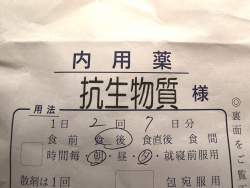 内用薬
抗生物質 様
用法
1日 2回 7日分
食前 食後 食直後 食間
時間毎 朝・昼・夕・就寝前服用
散剤は1回 包宛服用
◎裏面をご